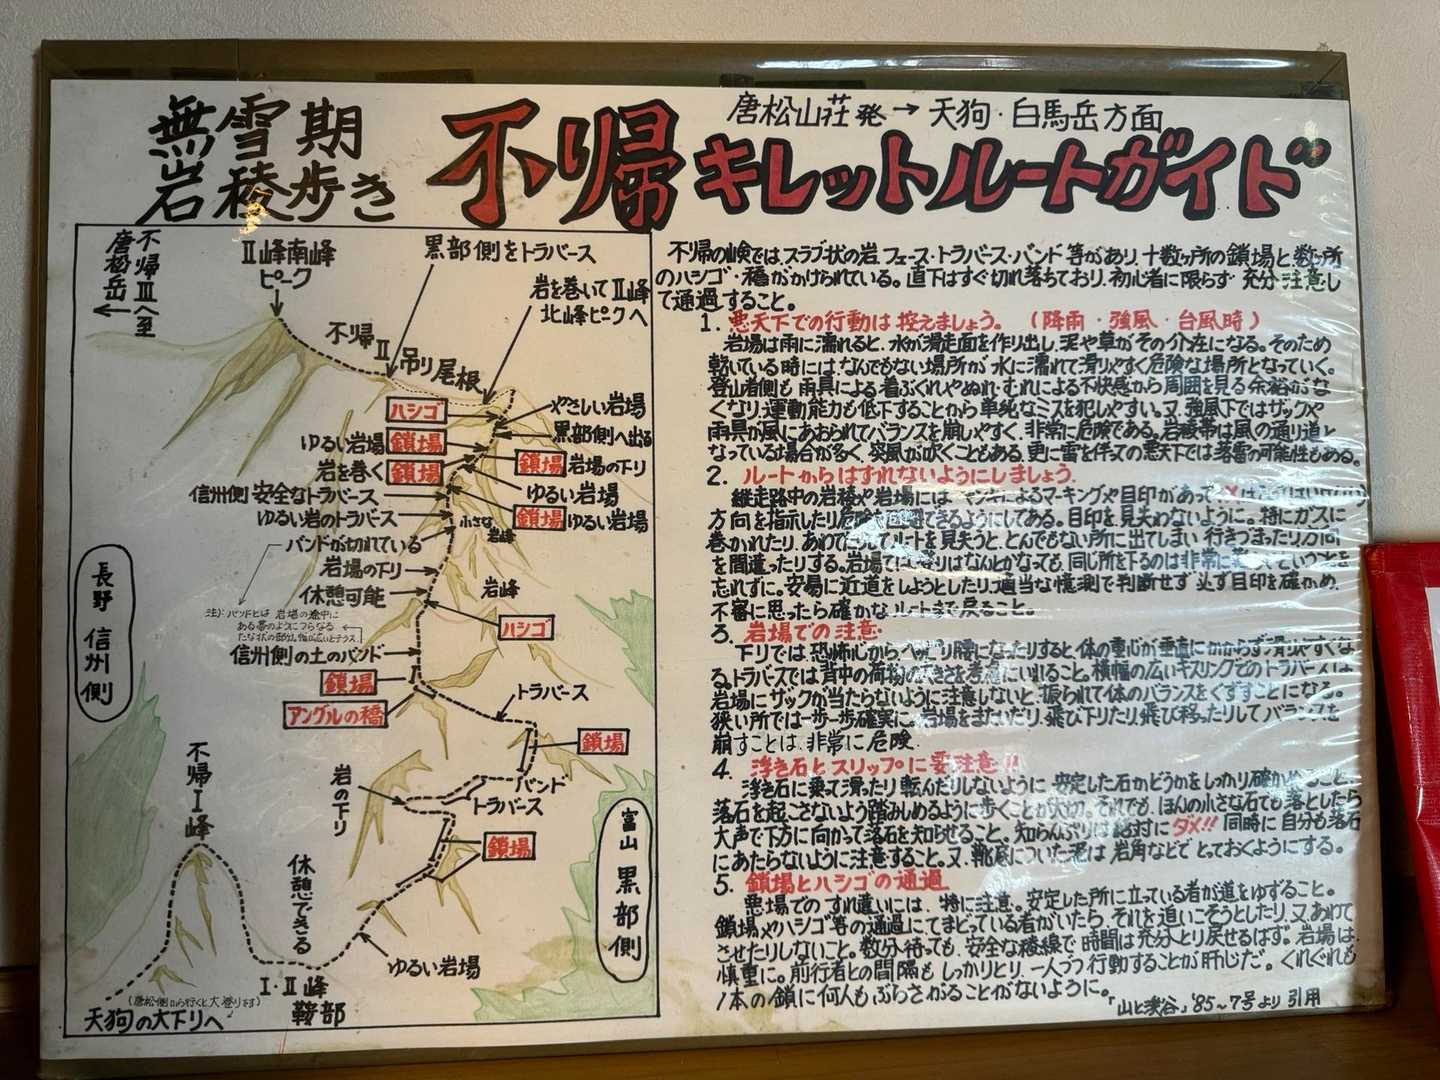 無雪期
岩稜歩き
不帰キレットルートガイド
唐松山荘発→天狗・白馬岳方面
不帰Ⅲへ至
唐松岳
←
Ⅱ峰南峰
ピーク
黒部側をトラバース
岩を巻いてⅡ峰
北峰ピークへ
不帰Ⅱ
吊り尾根
ハシゴ
やさしい岩場
黒部側へ出る
ゆるい岩場 鎖場
鎖場 岩場の下り
岩を巻く 鎖場
ゆるい岩場
信州側 安全なトラバース
鎖場 ゆるい岩場
ゆるい岩のトラバース
小さな
岩峰
バンドが切れている
岩場の下り
休憩可能
岩峰
注)バンドとは 岩場の途中に
ある帯のようにつらなる
たな状の部分。幅の広いとテラス
ハシゴ
信州側の土のバンド
鎖場
アングルの橋
トラバース
鎖場
バンド
トラバース
岩の下り
鎖場
長野 信州側
富山 黒部側
不帰Ⅰ峰
休憩できる
ゆるい岩場
Ⅰ・Ⅱ峰
鞍部
(唐松側から行くと大登りです)
天狗の大下りへ
不帰の嶮では、スラブ状の岩、フェース・トラバース・バンド等があり、十数ヶ所の鎖場と数ヶ所
のハシゴ・橋がかけられている。直下はすぐ切れ落ちており、初心者に限らず 充分注意し
て通過すること。
1. 悪天下での行動は控えましょう。(降雨・強風・台風時)
岩場は雨に濡れると、水が滑走面を作り出し、泥や草がその介在になる。そのため
乾いている時にはなんでもない場所が水に濡れて滑りやすく危険な場所となっていく。
登山者側も雨具による着ぶくれやぬれ・むれによる不快感から周囲を見る余裕がな
くなり、運動能力も低下することから単純なミスを犯しやすい。又、強風下ではザックや
雨具が風にあおられてバランスを崩しやすく、非常に危険である。岩稜帯は風の通り道と
なっている場合が多く、突風が吹くこともある。更に雷を伴っての悪天下では落雷の可能性もある。
2. ルートからはずれないようにしましょう。
縦走路中の岩稜や岩場には、ペンキによるマーキングや目印があって
方向を指示したり危険を回避できるようにしてある。目印を見失わないように。特にガスに
巻かれたり、あわてたりしてルートを見失うと、とんでもない所に出てしまい 行きづまったり方向
を間違ったりする。岩場では登りはなんとかなっても、同じ所を下るのは非常に難しいということを
忘れずに。安易に近道をしようとしたり、適当な憶測で判断せず 必ず目印を確かめ、
不審に思ったら確かなルートまで戻ること。
3. 岩場での注意
下りでは、恐怖心からへっぴり腰になったりすると体の重心が垂直にかからず滑りやすくな
る。トラバースでは背中の荷物の大きさを考慮にいれること。横幅の広いキスリングでのトラバースは
岩場にザックが当たらないように注意しないと、振られて体のバランスをくずすことになる。
狭い所では一歩一歩確実に。岩場をまたいだり、飛び下りたり、飛び移ったりしてバランスを
崩すことは、非常に危険。
4. 浮き石とスリップに要注意!!
浮き石に乗って滑ったり転んだりしないように 安定した石かどうかをしっかり確かめること。
落石を起こさないよう踏みしめるように歩くことが大切。それでも、ほんの小さな石でも落としたら
大声で下方に向かって落石を知らせること。知らんぷりは絶対にダメ!! 同時に自分も落石
にあたらないように注意すること。又、靴底についた泥は 岩角などで とっておくようにする。
5. 鎖場とハシゴの通過
悪場でのすれ違いには、特に注意。安定した所に立っている者が道をゆずること。
鎖場やハシゴ等の通過にてまどっている者がいたら、それを追いこそうとしたり、又、あわて
させたりしないこと。数分待っても、安全な稜線で時間は充分とり戻せるはず。岩場は、
慎重に。前行者との間隔もしっかりとり、一人づつ行動することが肝心だ。くれぐれも
1本の鎖に何人もぶらさがることがないように。
「山と渓谷」'85～7号より引用